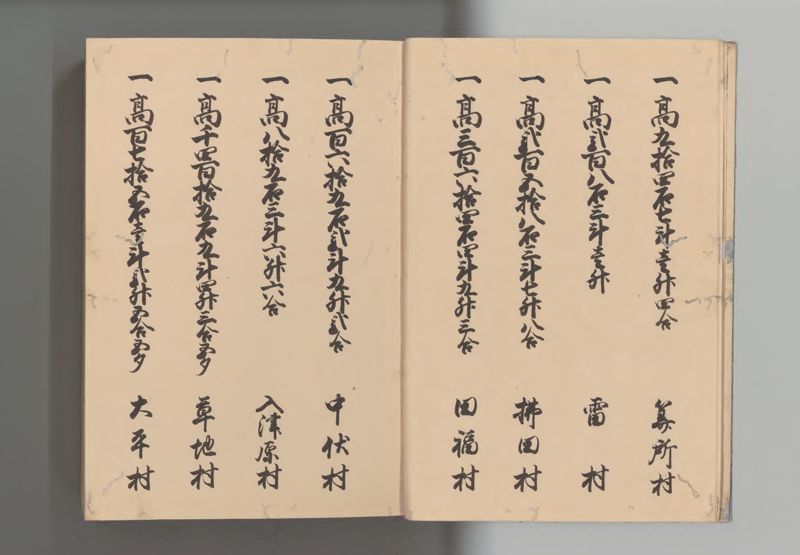 一高九拾四石七斗壱升四合 莇所村
一高弐百八石三斗壱升 雷村
一高弐百五拾八石三斗七升八合 拂田村
一高三百六拾四石四斗九升三合 田福村
一高百六拾九石弐斗九升弐合 中伏村
一高八拾九石三斗六升六合 入津原村
一高千四百拾九石九斗四升三合五夕 草地村
一高百七拾五石壱斗弐升五合五夕 大平村